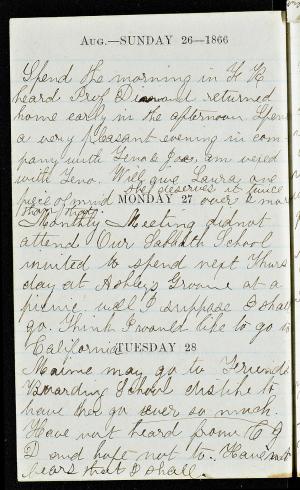 Aug.—SUNDAY 26—1866
Spend the morning in H H
heard Prof Dimond returned
home early in the afternoon. Spen
a very pleasant evening in com
pany with Zeno & Jas. am vexed
with Zeno. Will give Laura one
piece of mind she deserves it twice
over &
MONDAY 27
Monthly Meeting did not
attend Our Sabbath School
invited to spend next Thurs
day at Ashley's Groove at a
picnic well I suppose I shall
go. Think I would like to go to
California
TUESDAY 28
may go to Friends
Boarding School dislike to
have her go ever so much.
Have not heard from
D and hope not to. Have not
fears that I shall.